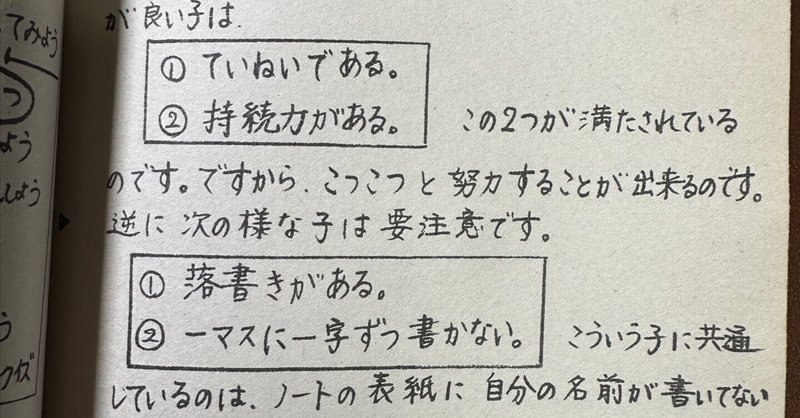 が良い子は、
① ていねいである。
② 持続力がある。
この2つが満たされている
のです。ですから、こつこつと努力することが出来るのです。
逆に次の様な子は要注意です。
① 落書きがある。
② 一マスに一字ずつ書かない。
こういう子に共通
しているのは、ノートの表紙に自分の名前が書いてない
てみよう
つ
よう
しょう
う
クイズ